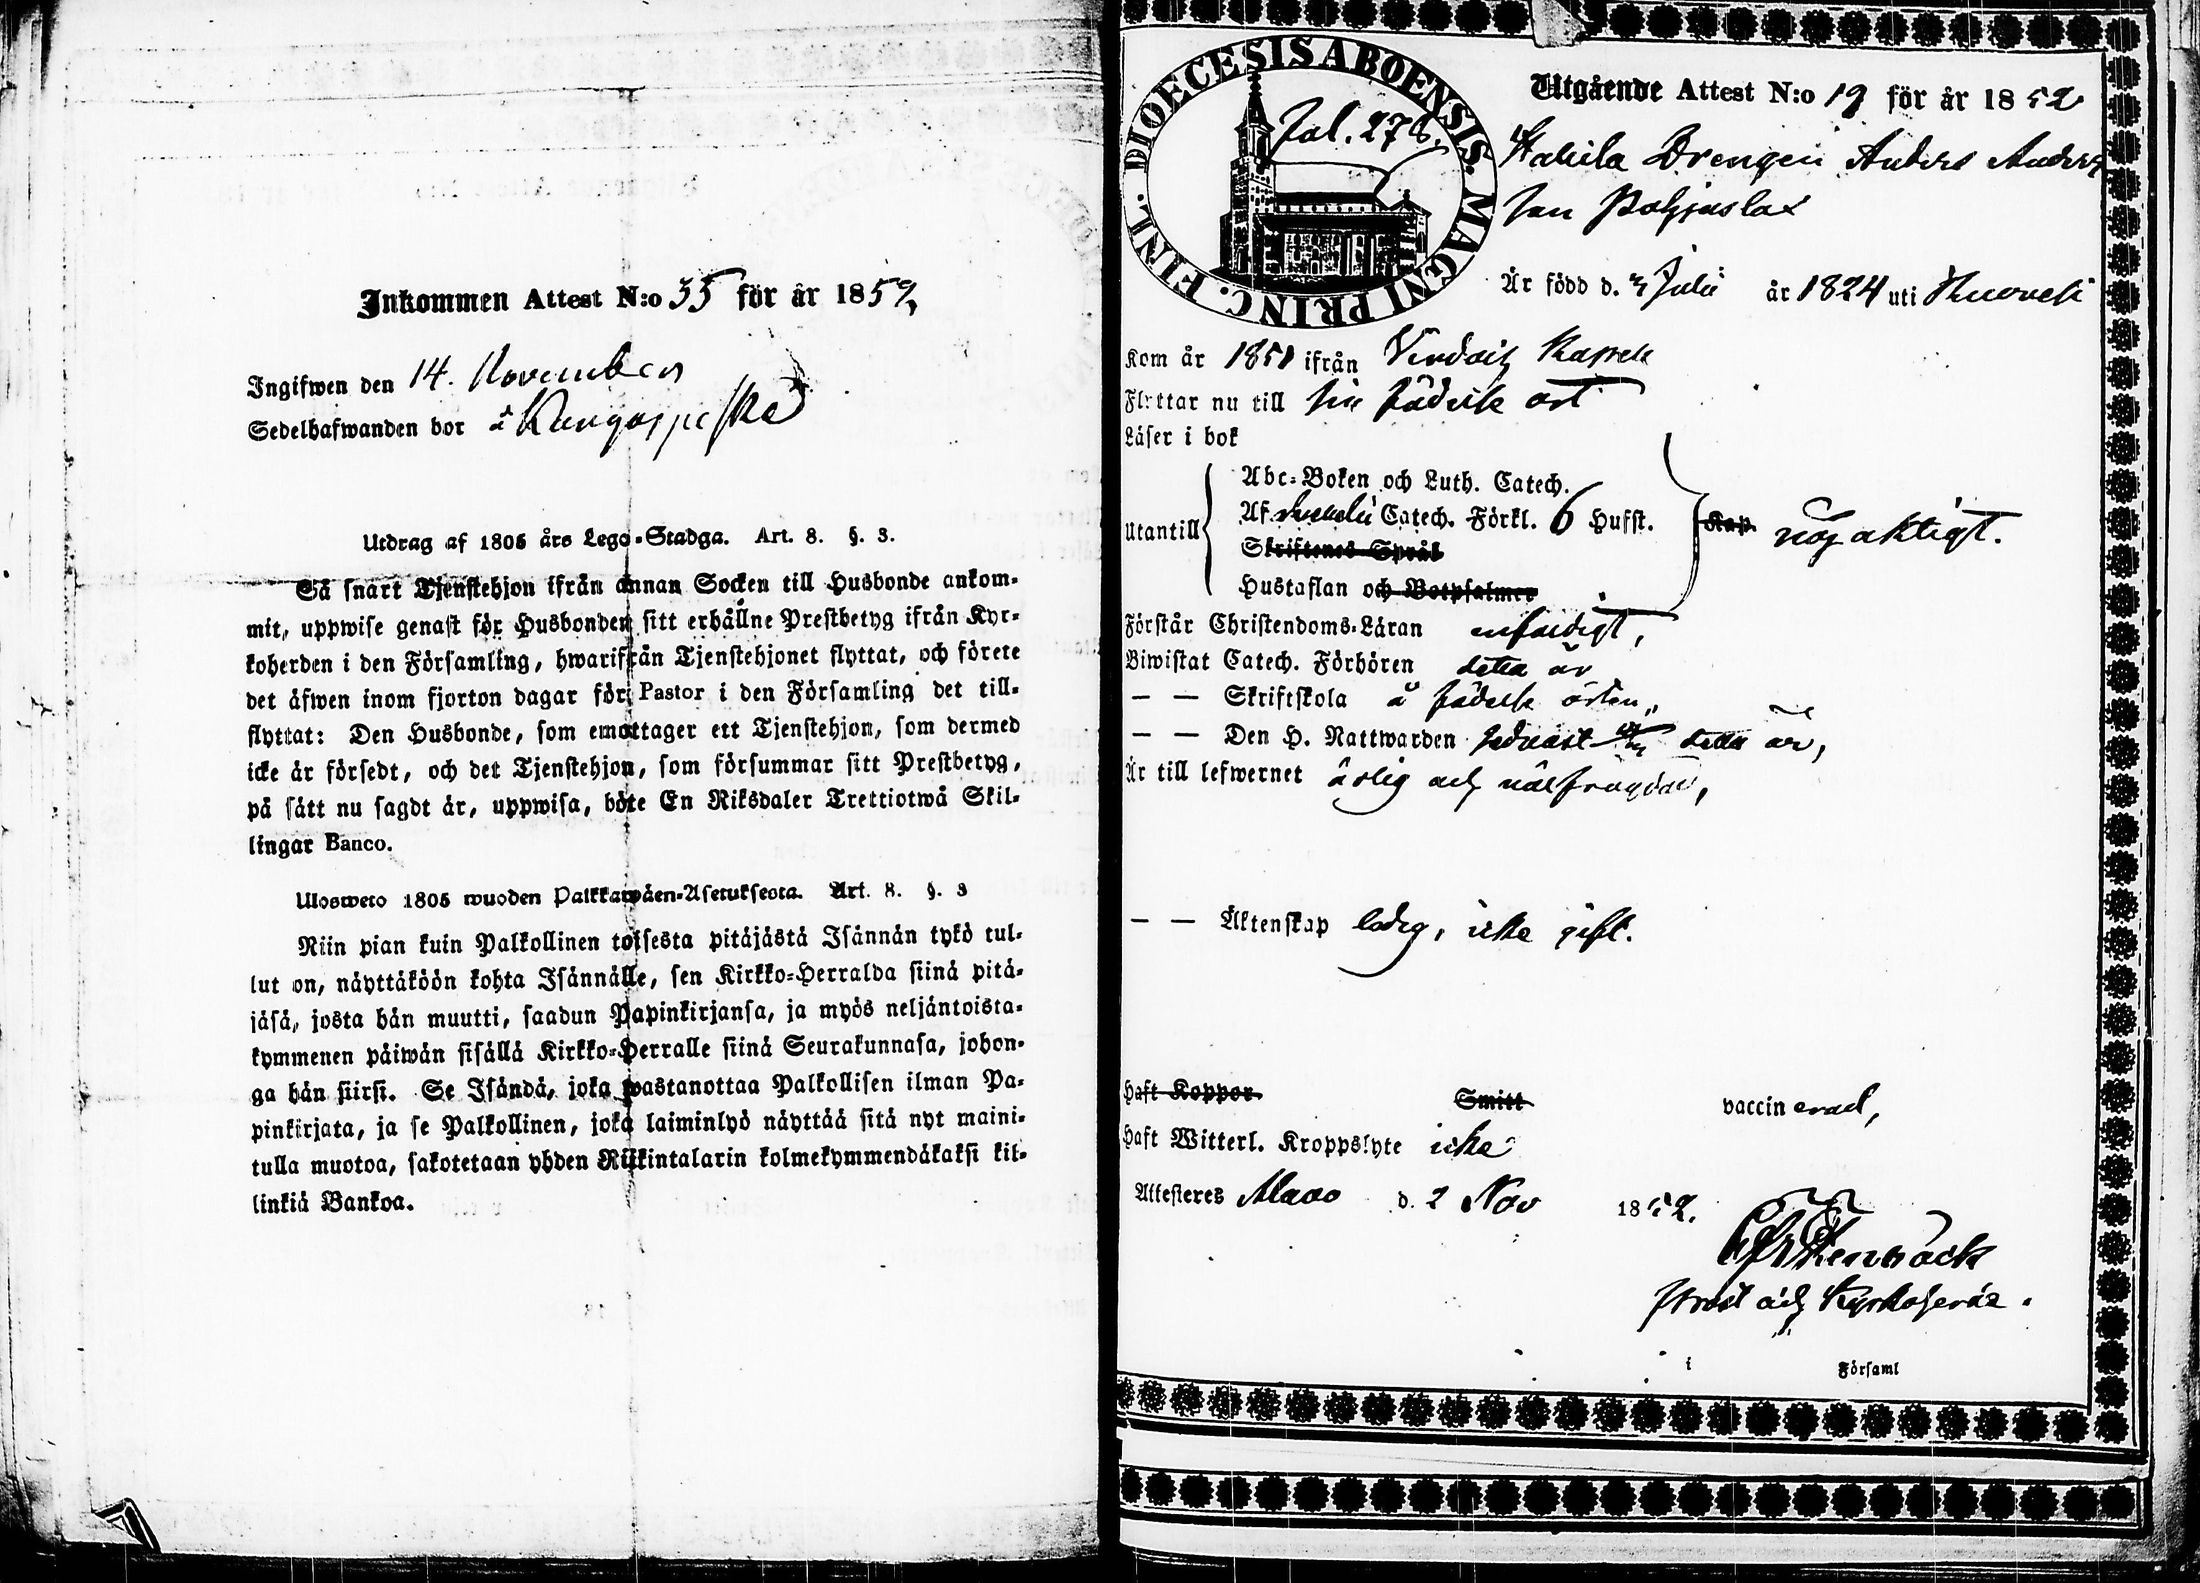 Inkommen Attest N:o 55 för år 1852
Ingifwen den 14. November
Sedelhafwanden bor å
Utdrag af 1805 års Lego-Stadga. Art. 8. §. 3.
Så snart Tjenstehjon ifrån annan Socken till Husbonde ankom-
mit, uppwise genast för Husbonden sitt erhållne Prestbetyg ifrån Kyr-
koherden i den Församling, hwarifrån Tjenstehjonet flyttat, och förete
det äfwen inom fjorton dagar för Pastor i den Församling det till-
flyttat: Den Husbonde, som emottager ett Tjenstehjon, som dermed
icke är försedt, och det Tjenstehjon, som försummar sitt Prestbetyg,
på sätt nu sagdt är, uppwisa, böte En Riksdaler Trettiotwå Skil-
lingar Banco.
Ulosweto 1805 wuoden Palkkawäen-Asetuksesta. Art. 8. §. 3
Niin pian kuin Palkollinen toisesta pitäjästä Isännän tykö tul-
lut on, näyttäköön kohta Isännälle, sen Kirkko-Herralda siinä pitä-
jäsä, josta hän muutti, saadun Papinkirjansa, ja myös neljäntoista-
kymmenen päiwän sisällä Kirkko-Herralle siinä Seurakunnasa, johon-
ga hän siirsi. Se Isändä, joka wastanottaa Palkollisen ilman Pa-
pinkirjata, ja se Palkollinen, joka laiminlyö näyttää sitä nyt maini-
tulla muotoa, sakotetaan yhden Riikintalarin kolmekymmendäkaksi kil-
linkiä Bankoa.
DIOECESIS ABOENSIS. MAGNI PRINC. FINL.
Pal. 276.
Utgående Attest N:o 19 för år 1852
Drengen Anders Anders
son Pohjaslax
Är född d. 3 Julii år 1824 uti Ruovesi
Kom år 1851 ifrån Virdois Kapell
Flyttar nu till sin födelse ort
Läser i bok
Utantill
Abc-Boken och Luth. Catech.
Af Svebelii Catech. Förkl. 6 Hufst.
Skriftenes Språk
Hustaflan och Botpsalmer
Kap. nöjaktigt.
Förstår Christendoms-Läran enfaldigt,
Biwistat Catech. Förhören detta år
— — Skriftskola å födelse orten,
— — Den H. Nattwarden sednast detta år,
Är till lefwernet ärlig och välfrägdad,
— — Äktenskap ledig, icke gift.
Haft Koppor. Smitt vaccinerad,
Haft Witterl. Kroppslyte icke
Attesteres Alavo d. 2 Nov 1852.
Stenbäck
Prost och Kyrkoherde.
i Församl